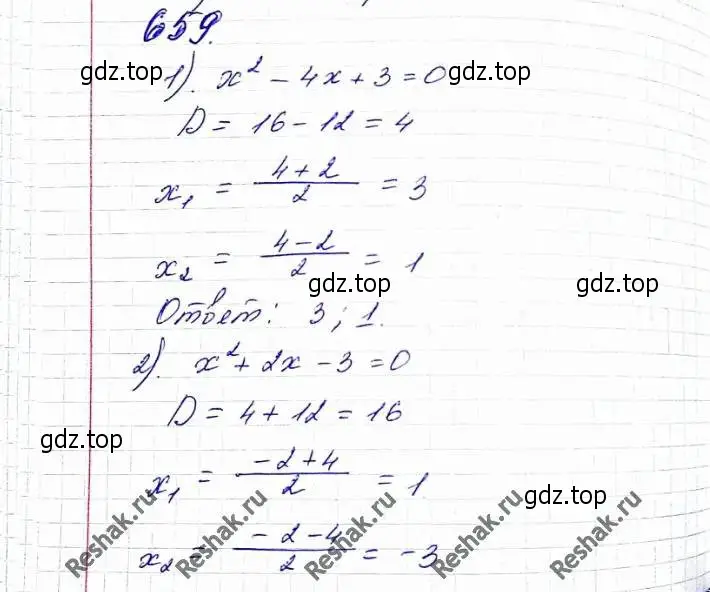 659.
gdz.top
gdz.top
1). x² - 4x + 3 = 0
D = 16 - 12 = 4
x₁ = (4 + 2)/2 = 3
x₂ = (4 - 2)/2 = 1
gdz.top
gdz.top
Ответ: 3; 1.
2). x² + 2x - 3 = 0
D = 4 + 12 = 16
gdz.top
x₁ = (-2 + 4)/2 = 1
gdz.top
x₂ = (-2 - 4)/2 = -3
Reshak.ru
Reshak.ru
Reshak.ru
Reshak.ru
Reshak.ru
Reshak.ru